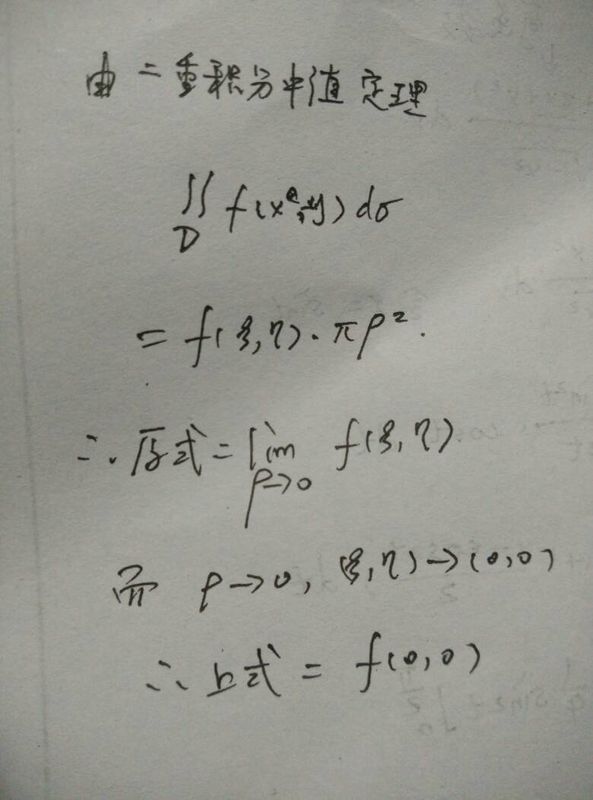 由二重积分中值定理
∬_D f(x,y)dσ
= f(ξ,η)·πρ².
∴原式=lim_{ρ→0} f(ξ,η)
而 ρ→0, (ξ,η)→(0,0)
∴上式= f(0,0)